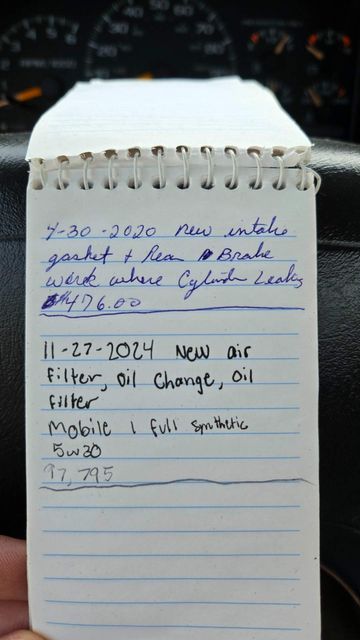 4-30-2020 New intake
gasket + Rear Brake
work where Cylinder Leaks
$476.00
11-27-2024 New air
filter, oil Change, oil
filter
Mobile 1 full synthetic
5w30
97,795